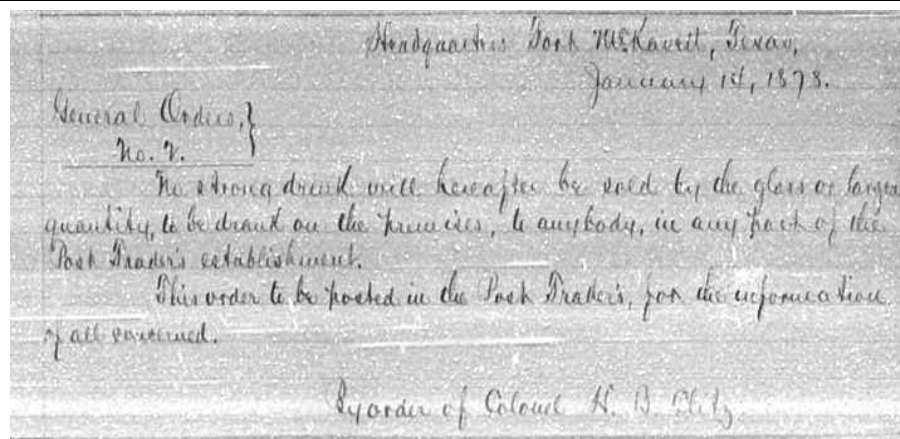 Headquarters Fort McKavett, Texas,
January 1st, 1878.
General Orders,}
No. 2.
No strong drink will hereafter be sold by the glass or larger
quantity, to be drank on the premises, to anybody, in any part of the
Post Trader's establishment.
This order to be posted in the Post Trader's, for the information
of all concerned.
By order of Colonel H. B. Clitz